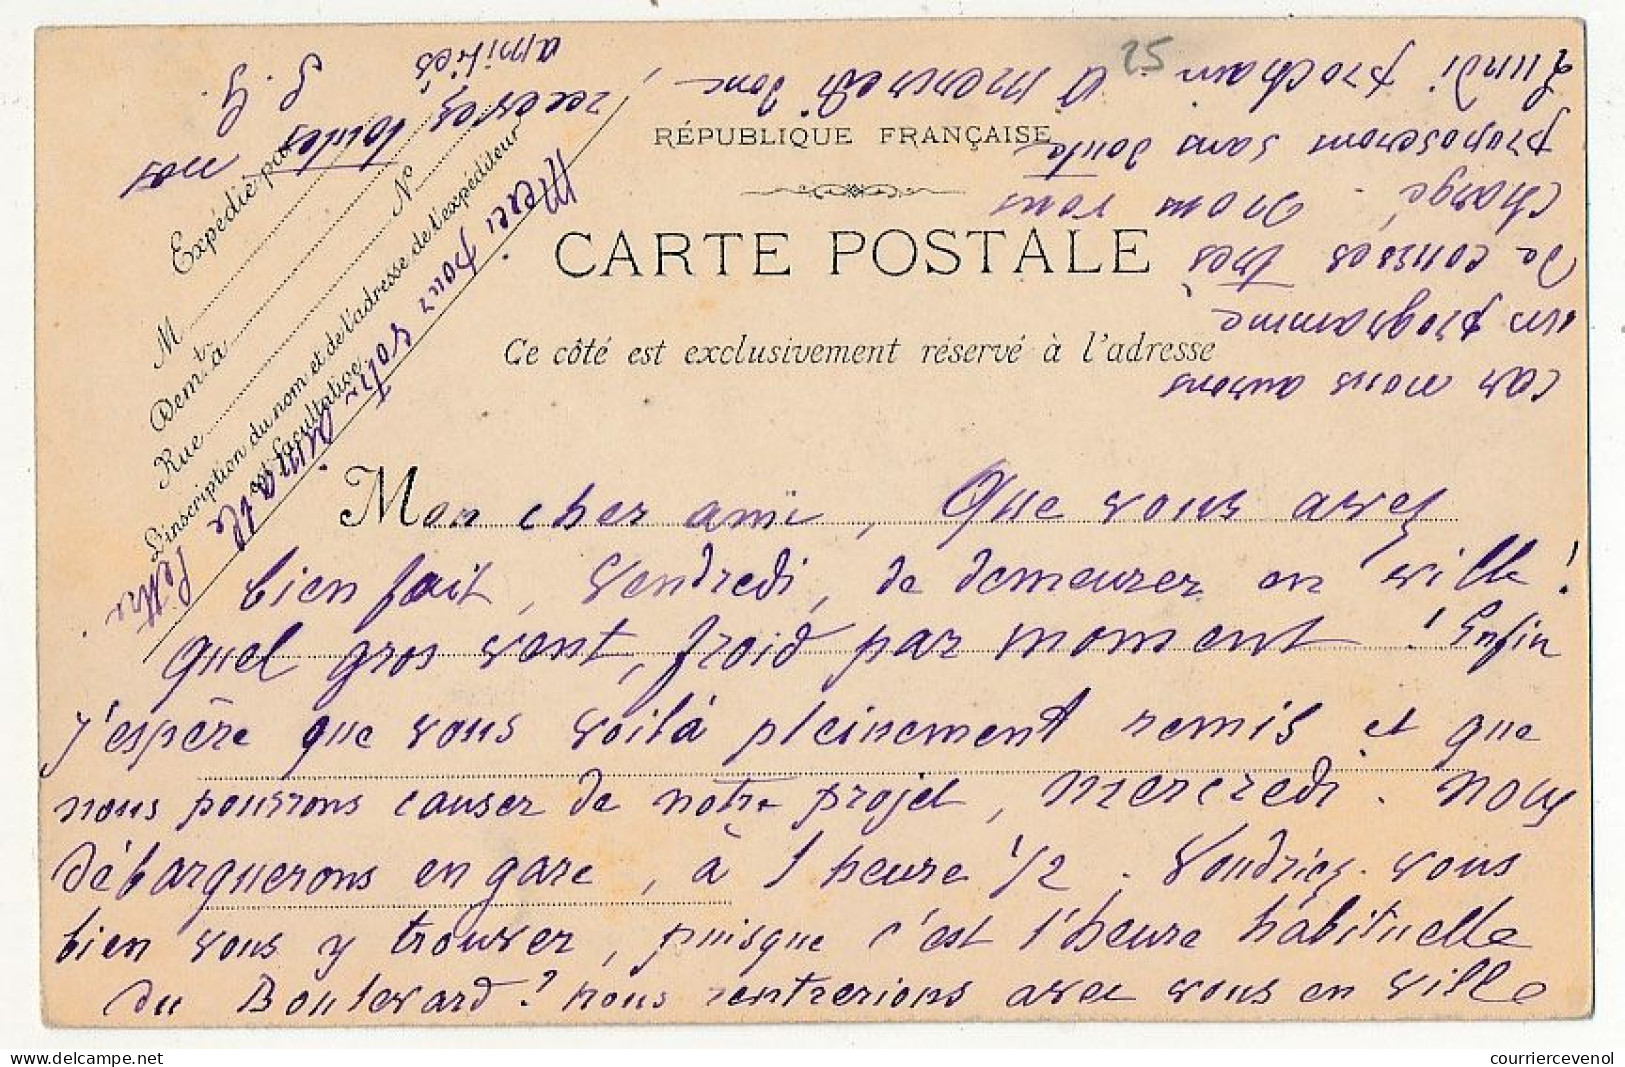 25
RÉPUBLIQUE FRANÇAISE
CARTE POSTALE
Ce côté est exclusivement réservé à l'adresse
Expédié par
M
Demt à
Rue
No
L'inscription du nom et de l'adresse de l'expéditeur
est facultative
Mon cher ami, Que vous avez
bien fait, vendredi, de demeurer en ville !
quel gros vent, froid par moment ! Enfin
j'espère que vous voilà pleinement remis et que
nous pourrons causer de notre projet, mercredi. Nous
débarquerons en gare, à 1 heure 1/2. Voudriez-vous
bien vous y trouver, puisque c'est l'heure habituelle
du Boulevard ? nous rentrerions avec vous en ville
car nous aurons
un programme
de courses très
chargé. Nous vous
proposerons sans doute
lundi prochain. A mercredi donc,
recevez toutes nos
amitiés
Merci pour votre aimable lettre.
courriercevenol